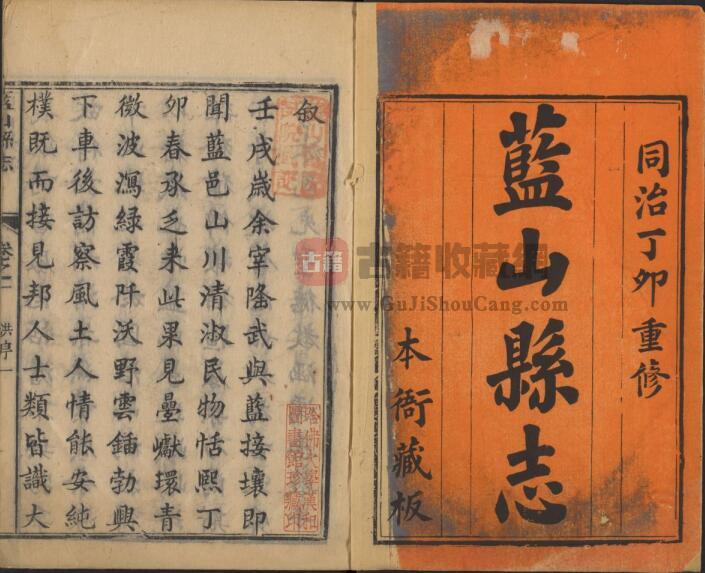 同治丁卯重修
藍山縣志
本衙藏板
叙
壬戌歲余宰隆武與藍接壤即
聞藍邑山川清淑民物恬熙丁
卯春承乏来此果見疊巘環青
微波瀉緑霞阡沃野雲鍤勃興
下車後訪察風土人情能安純
樸既而接見邦人士類皆識大
藍山縣志
卷之一
洪序一
哈佛大學漢和
圖書館珍藏印
古籍
古籍收藏網
www.GuJiShouCang.com